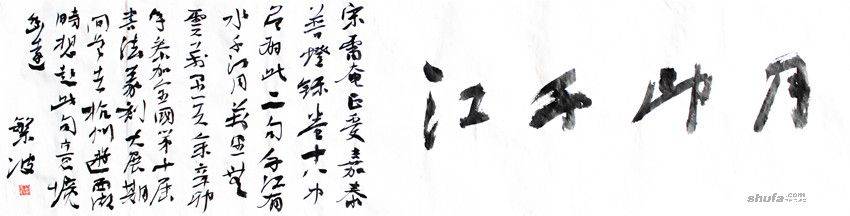 月印千江
宋雷庵正受嘉泰
普燈錄卷十八中
此二句千江有
水千江月萬里無
雲萬里天余辛卯
年參加全國第十屆
書法篆刻大展期
間去杭州遊湖
時想起此句意境
幽遠
繁波
shufa.com